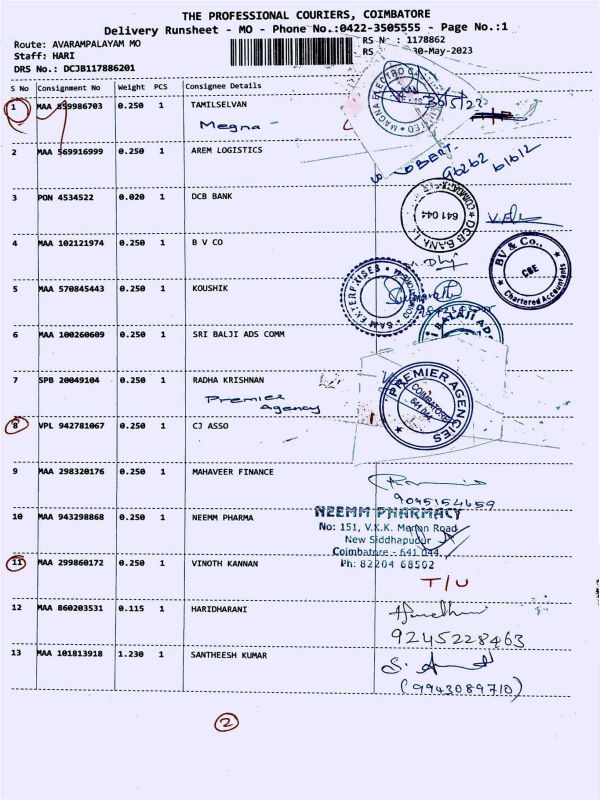 THE PROFESSIONAL COURIERS, COIMBATORE
Delivery Runsheet - MO - Phone No.:0422-3505555 - Page No.:1
Route: AVARAMPALAYAM MO
RS No : 1178862
Staff: HARI
RS 30-May-2023
DRS No.: DCJB117886201
S No Consignment No Weight PCS Consignee Details
1 MAA 899986703 0.250 1 TAMILSELVAN
Megna
30/5/23
2 MAA 569916999 0.250 1 AREM LOGISTICS
3 PON 4534522 0.020 1 DCB BANK
DCB BANK
641 044
4 MAA 102121974 0.250 1 B V CO
BV & Co.,
CBE
Chartered Accountants
5 MAA 570845443 0.250 1 KOUSHIK
SAM ENTERPRISES
6 MAA 100260609 0.250 1 SRI BALJI ADS COMM
BALAJI ADS
7 SPB 20049104 0.250 1 RADHA KRISHNAN
Premier
Agency
PREMIER AGENCIES
COIMBATORE
641 044
8 VPL 942781067 0.250 1 CJ ASSO
9 MAA 298320176 0.250 1 MAHAVEER FINANCE
9045154659
10 MAA 943298868 0.250 1 NEEMM PHARMA
NEEMM PHARMACY
No: 151, V.K.K. Menon Road
New Siddhapudur
Coimbatore - 641 044
Ph: 82204 68502
11 MAA 299860172 0.250 1 VINOTH KANNAN
T/U
12 MAA 860203531 0.115 1 HARIDHARANI
9245228463
13 MAA 101813918 1.230 1 SANTHEESH KUMAR
(9943089710)
2